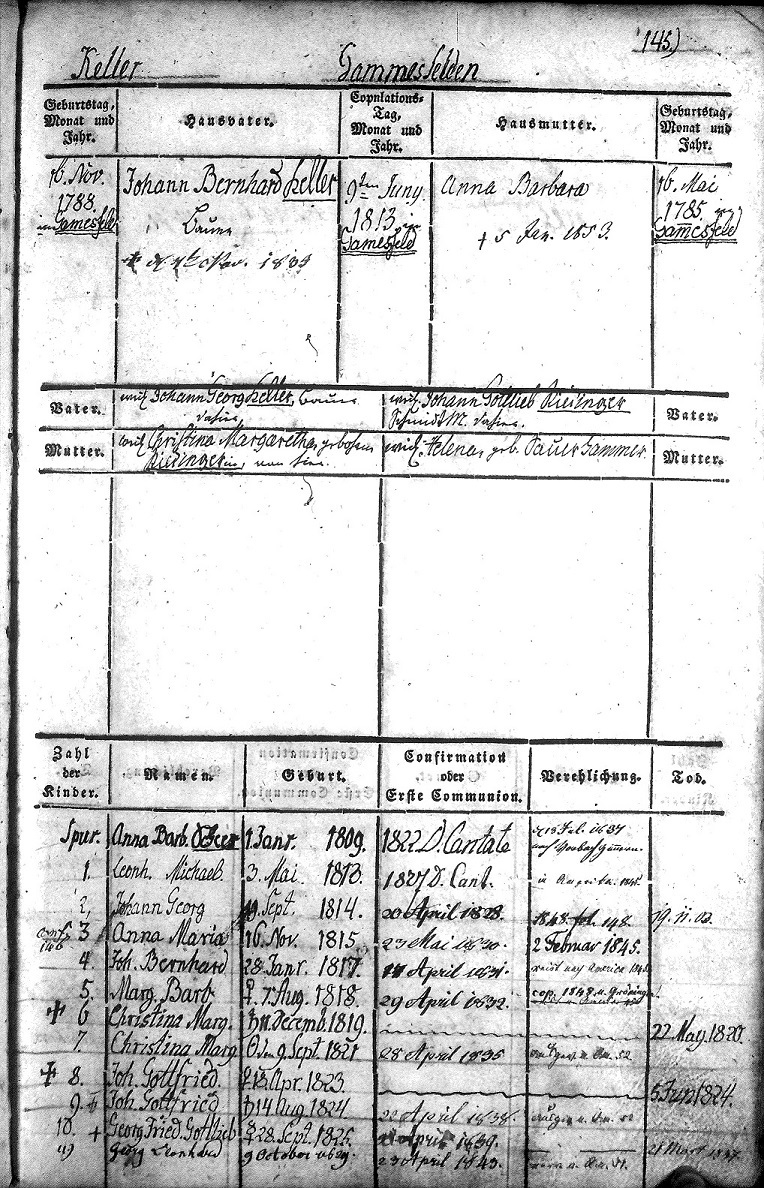 145.)
Keller Gammesfelden
Geburtstag, Monat und Jahr. Hausvater. Copulations-Tag, Monat und Jahr. Hausmutter. Geburtstag, Monat und Jahr.
16. Nov. 1788. Gamesfeld
Johann Bernhard Keller
Bauer
1839
9ten Juny 1813. Gamesfeld
Anna Barbara
† 5 Jan. 1853.
16. Mai 1785. Gamesfeld
Vater. weil. Johann Georg Keller, Bauer dahier, weil. Johann Gottlieb Riesinger Schmidt M. dahier. Vater.
Mutter. weil. Christina Margaretha, geborene Riesingerin, von hier. weil. Helena, geb. Mutter.
Zahl der Kinder. Namen. Geburt. Confirmation oder Erste Communion. Verehlichung. Tod.
Spur. Anna Barb. 1. Janr. 1809. 1822 D. Cantate
1. Leonh. Michael 3. Mai 1813. 1827 D. Cant.
2, Johann Georg Sept. 1814. 20 April 1828. 1848. fol. 148. 19. 11. 02.
3 Anna Maria 16. Nov. 1815. 23 Mai 1830. 2 Februar 1845.
4. Joh. Bernhard 28. Janr. 1817. April 1831.
5. Marg. Barb. ♀ 7. Aug. 1818. 29 April 1832. cop. 1848
✝ 6 Christina Marg. ♄ 11 Decemb. 1819. 22 May. 1820.
7. Christina Marg. 9. Sept. 1821 28 April 1835
✝ 8. Joh. Gottfried. Apr. 1823. 5 Jun 1824.
9. Joh. Gottfried ♄ 14 Aug. 1824. 22 April 1838.
10. † Georg Fried. Gottlieb ♀ 28. Sept. 1825. April 1839.
11 Georg Leonhard 9 October 1829. 23 April 1843.